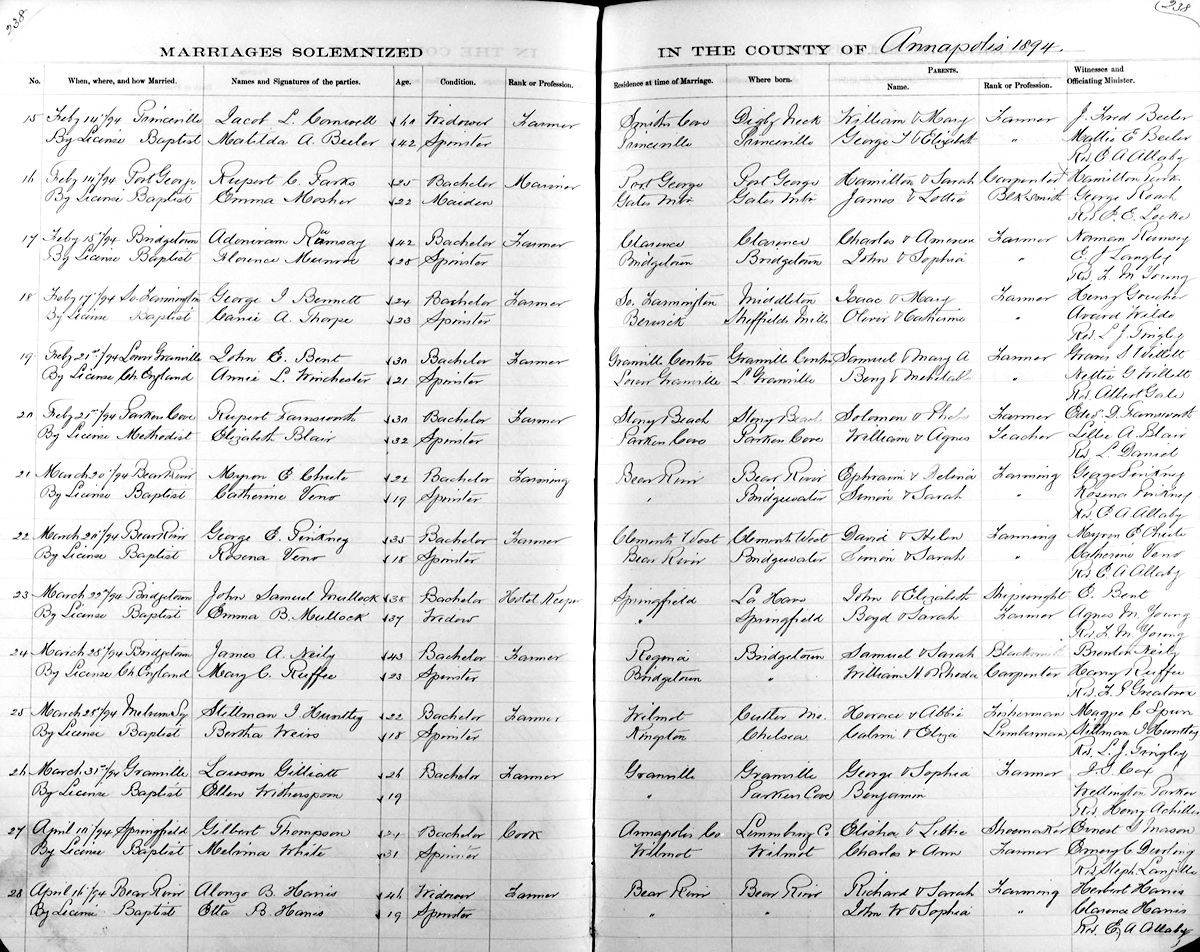 238
238
MARRIAGES SOLEMNIZED
IN THE COUNTY OF Annapolis 1894.
No. When, where, and how Married. Names and Signatures of the parties. Age. Condition. Rank or Profession. Residence at time of Marriage. Where born. PARENTS. Name. Rank or Profession. Witnesses and Officiating Minister.
15 Feby 14/94 Princeville Jacob L. Cornwell 60 Widower Farmer Smiths Cove Digby Neck William & Mary Farmer J. Fred Beeler
By License Baptist Matilda A. Beeler 42 Spinster Princeville Princeville George T & Elizabeth " Mattie E Beeler
Rev. E A Allaby
16 Feby 14/94 Port George Rupert C. Parks 25 Bachelor Mariner Port George Port George Hamilton & Sarah Carpenter Hamilton Park
By License Baptist Emma Mosher 22 Maiden Gates Mtn Gates Mtn James & Lottie Blk Smith George Roach
Rev. F. E. Locke
17 Feby 15/94 Bridgetown Adoniram Ramsay 42 Bachelor Farmer Clarence Clarence Charles & Amoren Farmer Norman Rumsey
By License Baptist Florence Munroe 28 Spinster Bridgetown Bridgetown John & Sophia " E. J Langley
Rev F. M. Young
18 Feby 17/94 So. Farmington George I Bennett 24 Bachelor Farmer So. Farmington Middleton Isaac & Mary Farmer Henry Goucher
By License Baptist Carrie A. Thorpe 23 Spinster Berwick Sheffields Mills Oliver & Catherine Avard Wilde
Rev. L. J Tingley
19 Feby 21st/94 Lower Granville John E. Bent 30 Bachelor Farmer Granville Centre Granville Centre Samuel & Mary A Farmer Willett
By License Ch England Annie L. Winchester 21 Spinster Lower Granville L Granville Benj & Mehitable " Nettie G Willett
Rev. Albert Gale
20 Feby 21st/94 Parkers Cove Rupert Farnsworth 30 Bachelor Farmer Stony Beach Stony Beach Solomon & Farmer D. Farnsworth
By License Methodist Elizabeth Blair 32 Spinster Parkers Cove Parkers Cove William & Agnes Teacher Lillie A. Blair
Rev. L. Daniel
21 March 20/94 Bear River Myron E Chute 22 Bachelor Farming Bear River Bear River Ephraim & Farming George Pinkney
By License Baptist Catherine Veno 19 Spinster " Bridgewater Simon & Sarah " Rosena Pinkney
Rev. E A Allaby
22 March 20/94 Bear River George E. Pinkney 35 Bachelor Farmer Clements West Clements West David & Helen Farming Myron E Chute
By License Baptist Rosena Veno 18 Spinster Bear River Bridgewater Simon & Sarah " Catherine Veno
Rev. E A Allaby
23 March 22/94 Bridgetown John Samuel Mullock 38 Bachelor Hotel Keeper Springfield La Have John & Elizabeth Shipwright O. Bent
By License Baptist Emma B. Mullock 37 Widow " Springfield Boyd & Sarah Farmer Agnes M Young
Rev. F. M. Young
24 March 28/94 Bridgetown James A. Neily 43 Bachelor Farmer Regina Bridgetown Samuel & Sarah Blacksmith Neily
By License Ch England Mary C. Ruffee 23 Spinster Bridgetown " William H & Rhoda Carpenter Harry Ruffee
Rev. F. S Greatorex
25 March 28/94 Stillman I Huntley 22 Bachelor Farmer Wilmot Cutter Me. Horace & Abbie Fisherman Maggie C Spurr
By License Baptist Bertha Weirs 18 Spinster Kingston Chelsea Calvin & Eliza Lumberman Stillman I Huntley
Rev. L. J. Tingley
26 March 31st/94 Granville Lawson Gilliatt 26 Bachelor Farmer Granville Granville George & Sophia Farmer J. S. Cox
By License Baptist Ellen Witherspoon 19 " Parkers Cove Benjamin Wellington Parker
Rev. Henry Achilles
27 April 10/94 Springfield Gilbert Thompson 24 Bachelor Cook Annapolis Co Lunenburg Co Elisha & Lettie Shoemaker Ernest Mason
By License Baptist Melvina White 31 Spinster Wilmot Wilmot Charles & Ann Farmer Emery C Durling
Rev. Steph. Langille
28 April 16/94 Bear River Alonzo B. Harris 46 Widower Farmer Bear River Bear River Richard & Sarah Farming Herbert Harris
By License Baptist Etta B. Harris 19 Spinster " " John W & Sophia " Clarence Harris
Rev. E. A Allaby